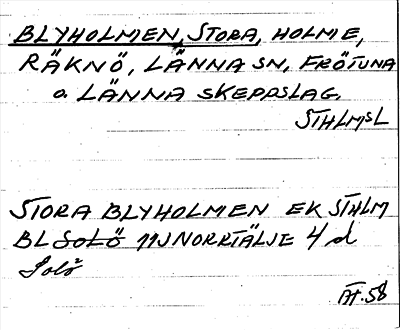 BLYHOLMEN, STORA, HOLME,
RÄKNÖ, LÄNNA SN, FRÖTUNA
o. LÄNNA SKEPPSLAG.
STHLMSL
STORA BLYHOLMEN EK STHLM
BL SOLÖ 11J NORRTÄLJE 4 d
Solö
ÅT. 58